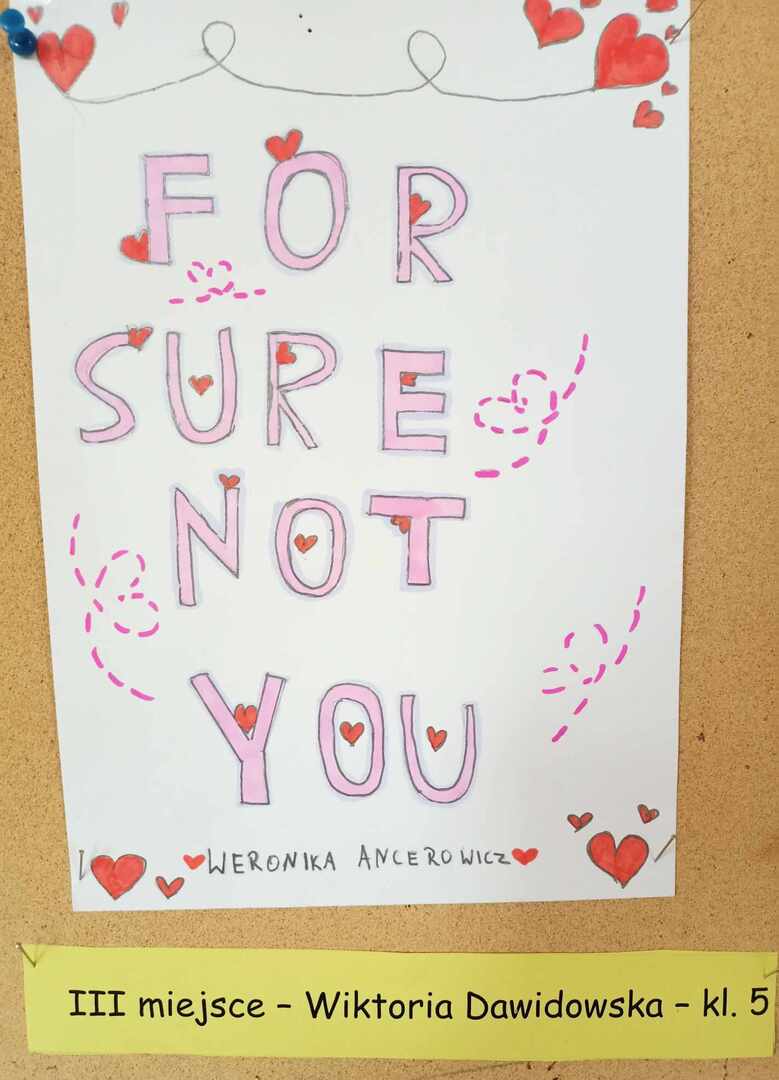 FOR
SURE
NOT
YOU
WERONIKA ANCEROWICZ
III miejsce - Wiktoria Dawidowska - kl. 5